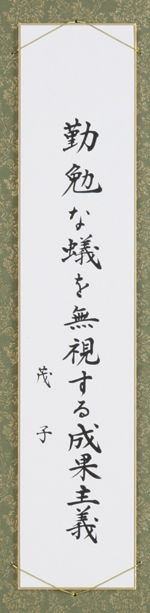 勤勉な蟻を無視する成果主義
茂子